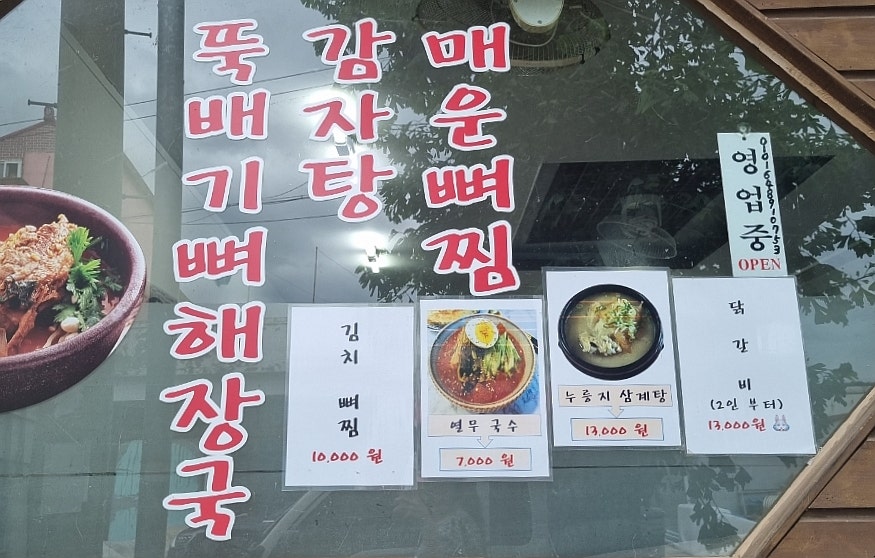 뚝배기뼈해장국
감자탕
매운뼈찜
영업중
OPEN
010648910753
김치 뼈찜
10,000 원
열무 국수
7,000 원
누릉지 삼계탕
13,000 원
닭갈비
(2인 부터)
13,000원